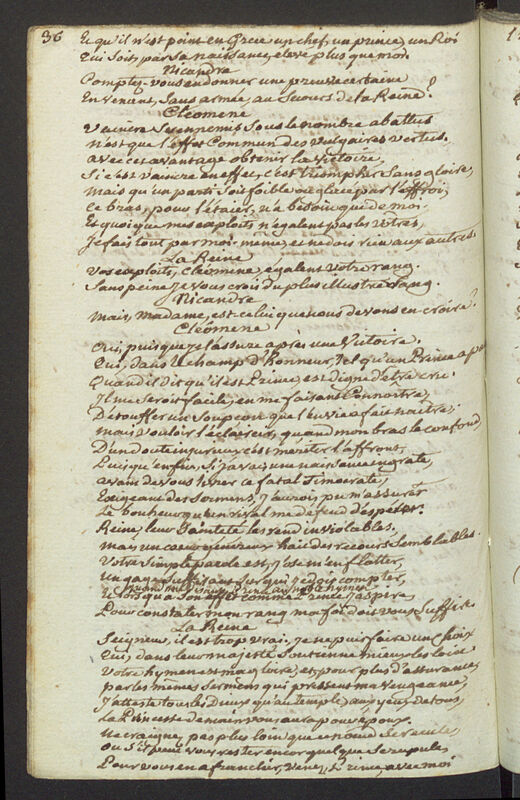 36
Et qu'il n'est point en Grece un chef, un prince, un Roi
Qui soit, par sa naissance, elevé plus que moi.
Nicandre
Comptez-vous en donner une preuve certaine
En venant, sans armée, au secours de la Reine?
Cléomene
Vaincre ses ennemis sous le nombre abattus
n'est que l'effort commun des vulgaires vertus.
avec cet avantage obtenir la victoire,
Si c'est vaincre en effet, c'est triompher sans gloire,
mais qu'un parti soit foible ou glacé par l'effroi,
ce bras, pour l'étaier, n'a besoin que de moi.
Et quoique mes exploits n'egalent pas les vôtres,
Je fais tout par moi-meme, et ne dois rien aux autres.
La Reine
Vos exploits, Cléomene, égalent votre rang.
Sans peine je vous crois du plus illustre sang.
Nicandre
mais, madame, est-ce lui que nous devons en croire?
Cléomene
Oui, puisque je l'assure après une victoire,
Qui, dans le champ d'honneur, tel qu'un Prince a
Quand il dit qu'il est Prince, est digne d'être cru.
Il me seroit facile, en me faisant connoître,
D'étouffer un soupçon que l'envie a fait naître;
mais vouloir l'éclaircir, quand mon bras le confond
D'un doute injurieux c'est mériter l'affront,
Puisqu'enfin, si j'avois une naissance ingrate,
avant de vous livrer ce fatal Timocrate,
Exigeant des sermens, j'aurois pu m'assurer
Le bonheur qu'un rival me défend d'espérer.
Reine, leur sainteté les rend inviolables.
mais un cœur genereux hait des recours semblables.
Votre simple parole est, j'ose m'en flatter,
un gage suffisant sur qui je dois compter,
Quand
Et lorsque comme Prince j'aspire,
Pour constater mon rang ma foi doit vous suffire.
La Reine
Seigneur, il est trop vrai. je ne puis faire un choix
Qui, dans leur majesté soutienne mieux les loix
Votre hymen est ma gloire, et, pour plus d'assurance,
par les mêmes sermens qui pressent ma vengeance,
J'atteste tous les Dieux qu'au temple, aux yeux de tous,
La Princesse de moi vous aura pour époux.
ne craignez pas plus loin que
ou s'il peut vous rester encor quelque scrupule,
Pour vous en afranchir, venez, Prince, avec moi